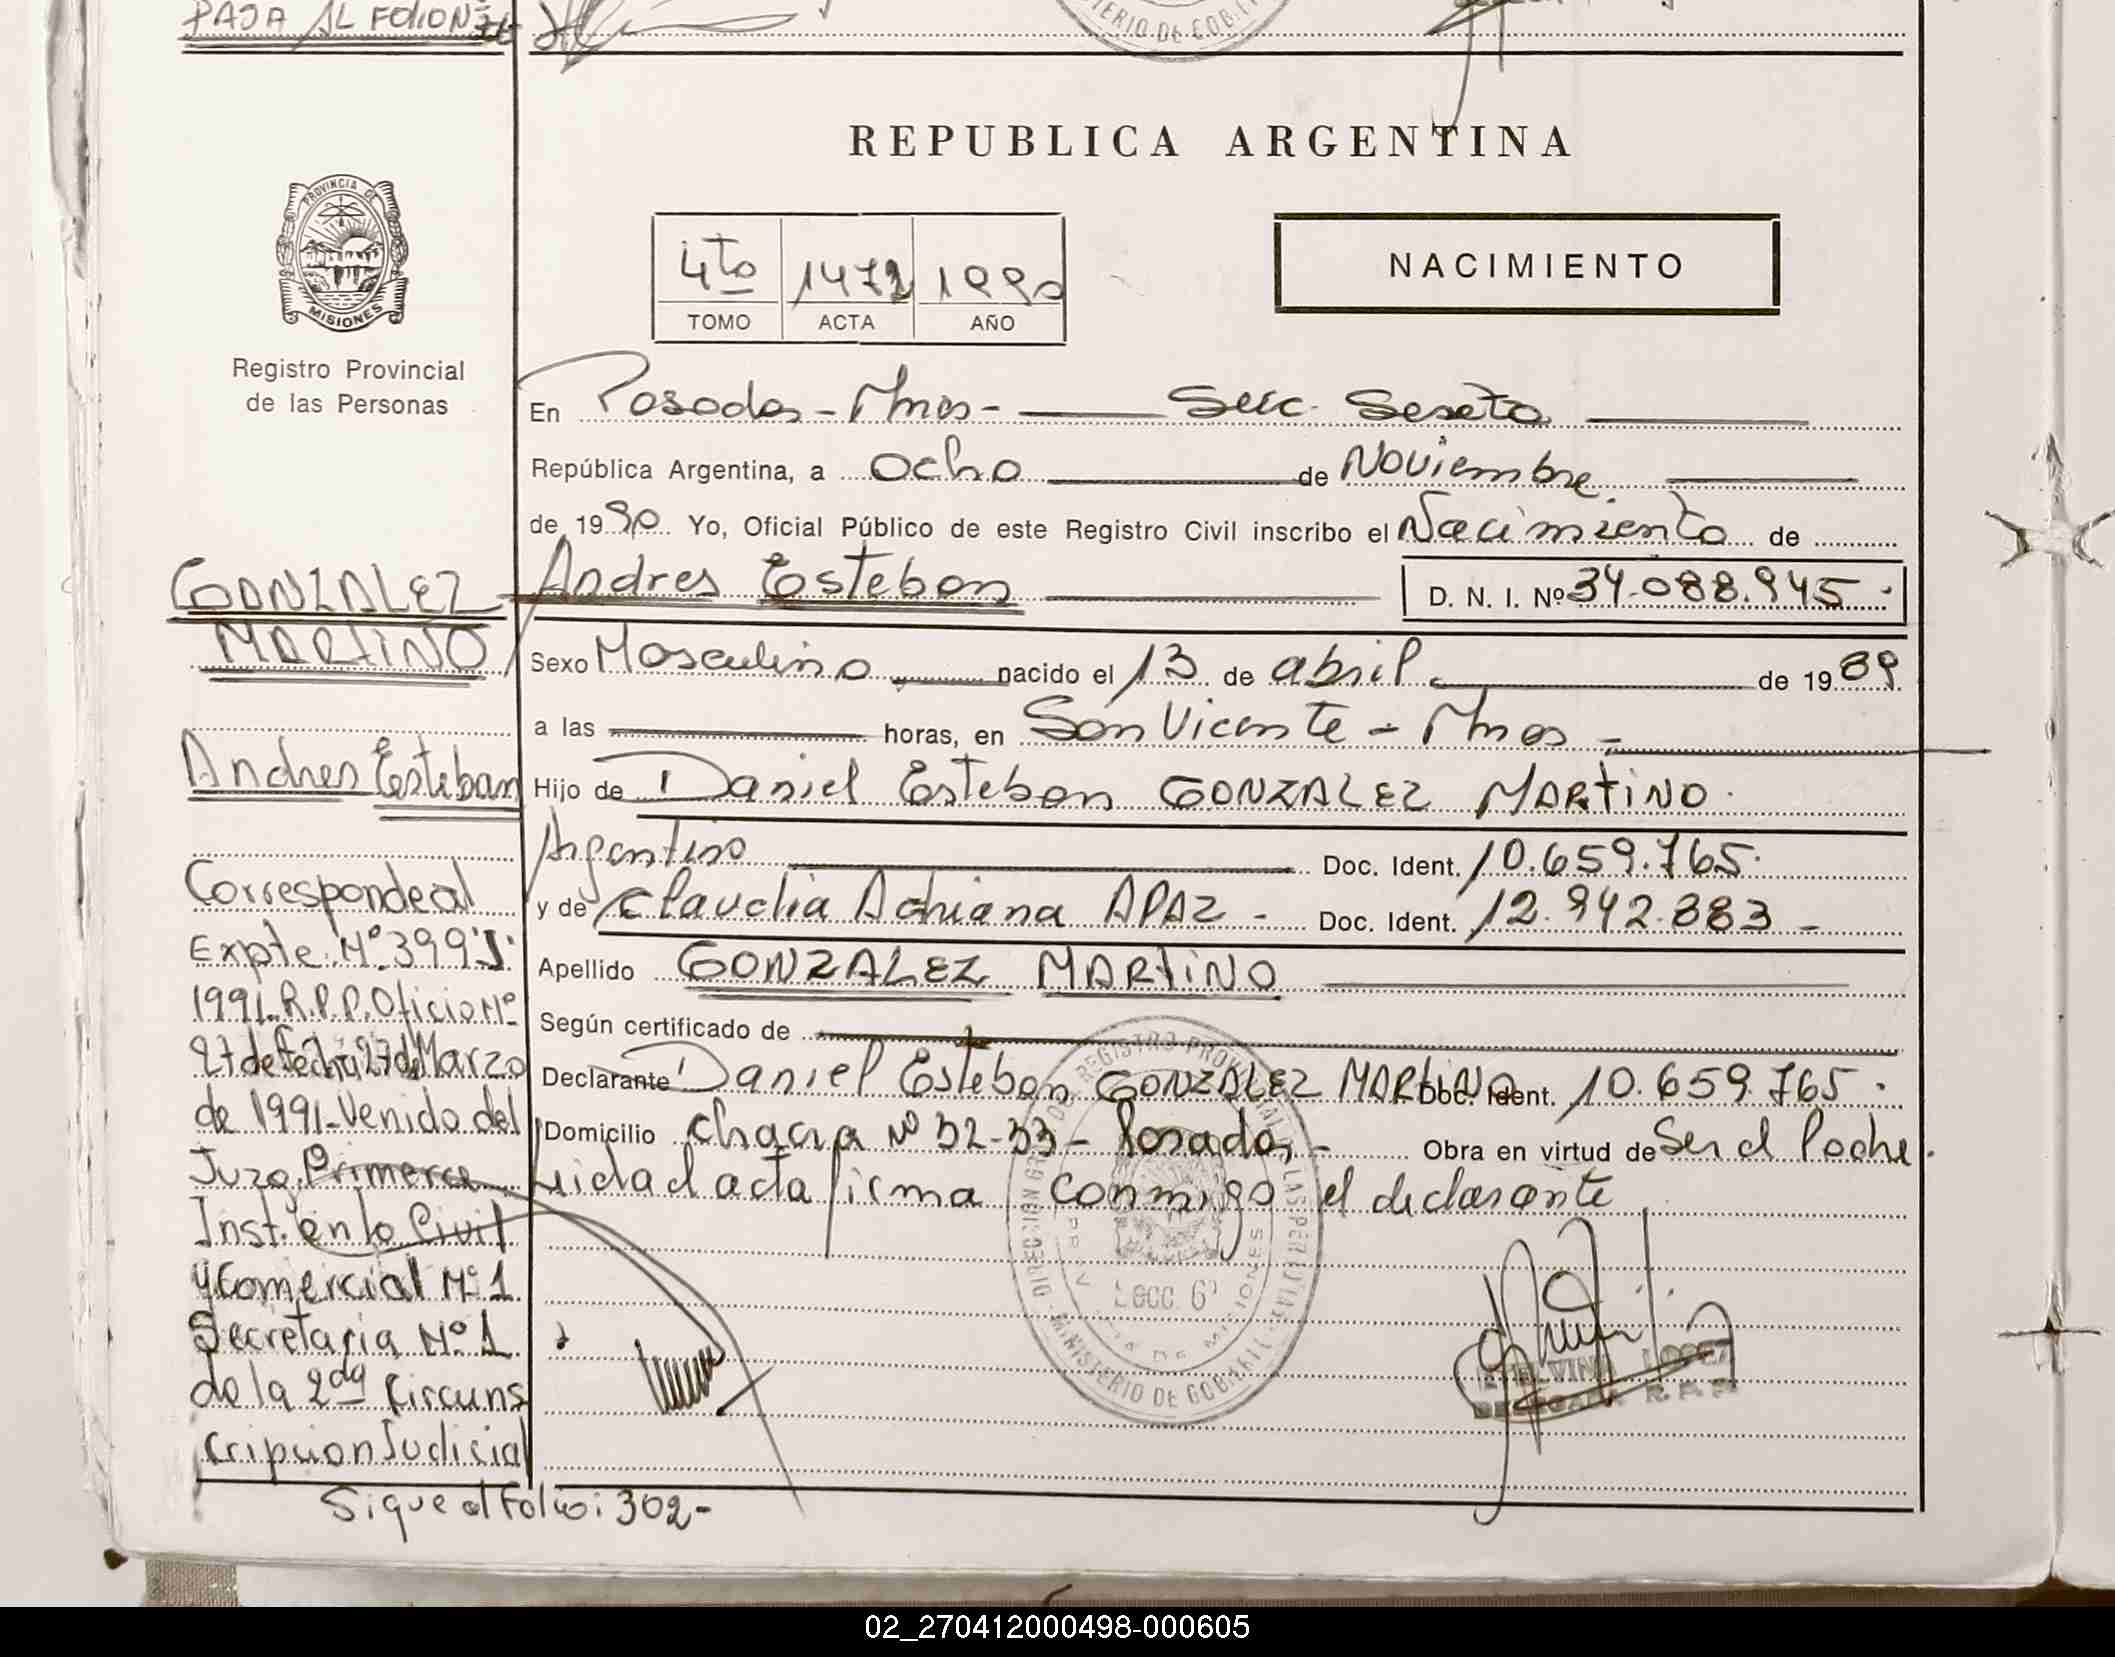 PASA AL FOLION
MINISTERIO DE GOB
REPUBLICA ARGENTINA
PROVINCIA DE
MISIONES
Registro Provincial
de las Personas
4to 1472 1990
TOMO ACTA AÑO
NACIMIENTO
En Posadas - Mnes - Secc. Sexta
República Argentina, a ocho de Noviembre.
de 1990 Yo, Oficial Público de este Registro Civil inscribo el Nacimiento de
Andres Esteban D. N. I. Nº 34.088.945.
Sexo Masculino nacido el 13 de abril de 1989
a las horas, en San Vicente - Mnes -
Hijo de Daniel Esteban GONZALEZ MARTINO.
Argentino Doc. Ident. 10.659.765.
y de Claudia Adriana APAZ - Doc. Ident. 12.942.883 -
Apellido GONZALEZ MARTINO
Según certificado de
Declarante Daniel Esteban GONZALEZ MARTINO Doc. Ident. 10.659.765.
Domicilio Chacra Nº 32-33 - Posadas - Obra en virtud de Ser el Padre.
Leida el acta firma conmigo el declarante
GONZALEZ
MARTINO
Andres Esteban
Corresponde al
Expte. Nº 399"J"
1991. R.P.P. Oficio Nº
27 de fecha 27 de Marzo
de 1991 - Venido del
Juzg. Primera
Inst. en lo Civil
y Comercial Nº 1
Secretaria Nº 1
de la 2da Circuns
cripcion Judicial
Sigue al Folio: 302-
REGISTRO PROVINCIAL DE LAS PERSONAS
SECC. 6ª
MINISTERIO DE GOB
LOPEZ
DELEGADA R. P. P.
02_270412000498-000605